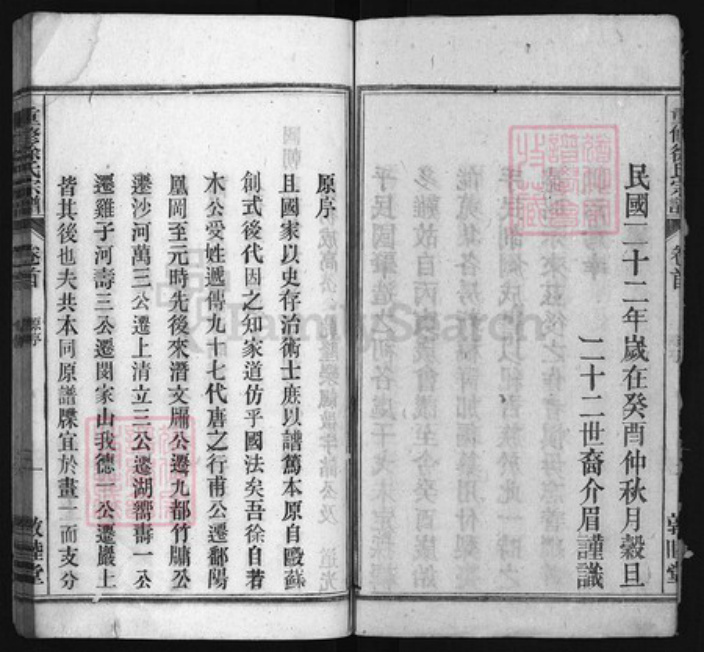 民國二十二年歲在癸酉仲秋月穀旦
二十二世裔介眉謹識
重修徐氏宗譜 卷首 原序 一 敦睦堂
原序
且國家以史存治術士庶以譜篤本原自毉蘇
創式後代因之知家道仿乎國法矣吾徐自若
木公受姓遞傳九十七代唐之行甫公遷鄱陽
凰岡至元時先後來潛文牖公遷九都竹牗公
遷沙河萬三公遷上清立三公遷湖嚮壽一公
遷雞子河壽三公遷閔家山我德一公遷巖上
皆其後也夫共本同原譜牒宜於畫一而支分
FamilySearch